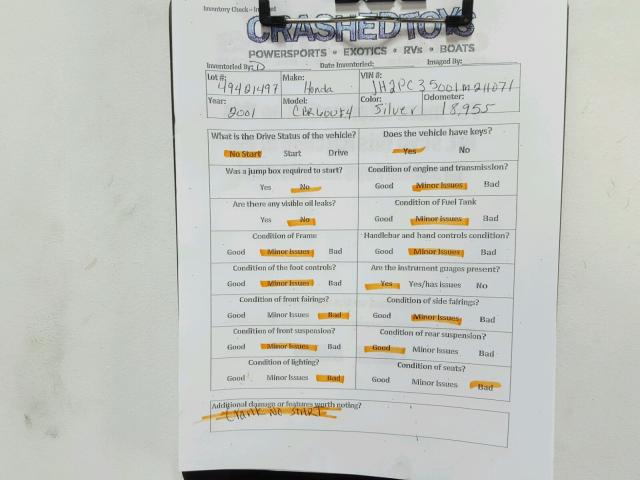 Inventory Check – In
CRASHEDTOYS
POWERSPORTS • EXOTICS • RVs • BOATS
Inventoried By: D Date Inventoried: Imaged By:
Lot #: 49421497 Make: Honda VIN #:
Year: 2001 Model: Color: Silver Odometer: 18,955
What is the Drive Status of the vehicle? Does the vehicle have keys?
No Start Start Drive Yes No
Was a jump box required to start? Condition of engine and transmission?
Yes No Good Minor Issues Bad
Are there any visible oil leaks? Condition of Fuel Tank
Yes No Good Minor Issues Bad
Condition of Frame Handlebar and hand controls condition?
Good Minor Issues Bad Good Minor Issues Bad
Condition of the foot controls? Are the instrument guages present?
Good Minor Issues Bad Yes Yes/has issues No
Condition of front fairings? Condition of side fairings?
Good Minor Issues Bad Good Minor Issues Bad
Condition of front suspension? Condition of rear suspension?
Good Minor Issues Bad Good Minor Issues Bad
Condition of lighting? Condition of seats?
Good Minor Issues Bad Good Minor Issues Bad
Additional damage or features worth noting?
Crank no START